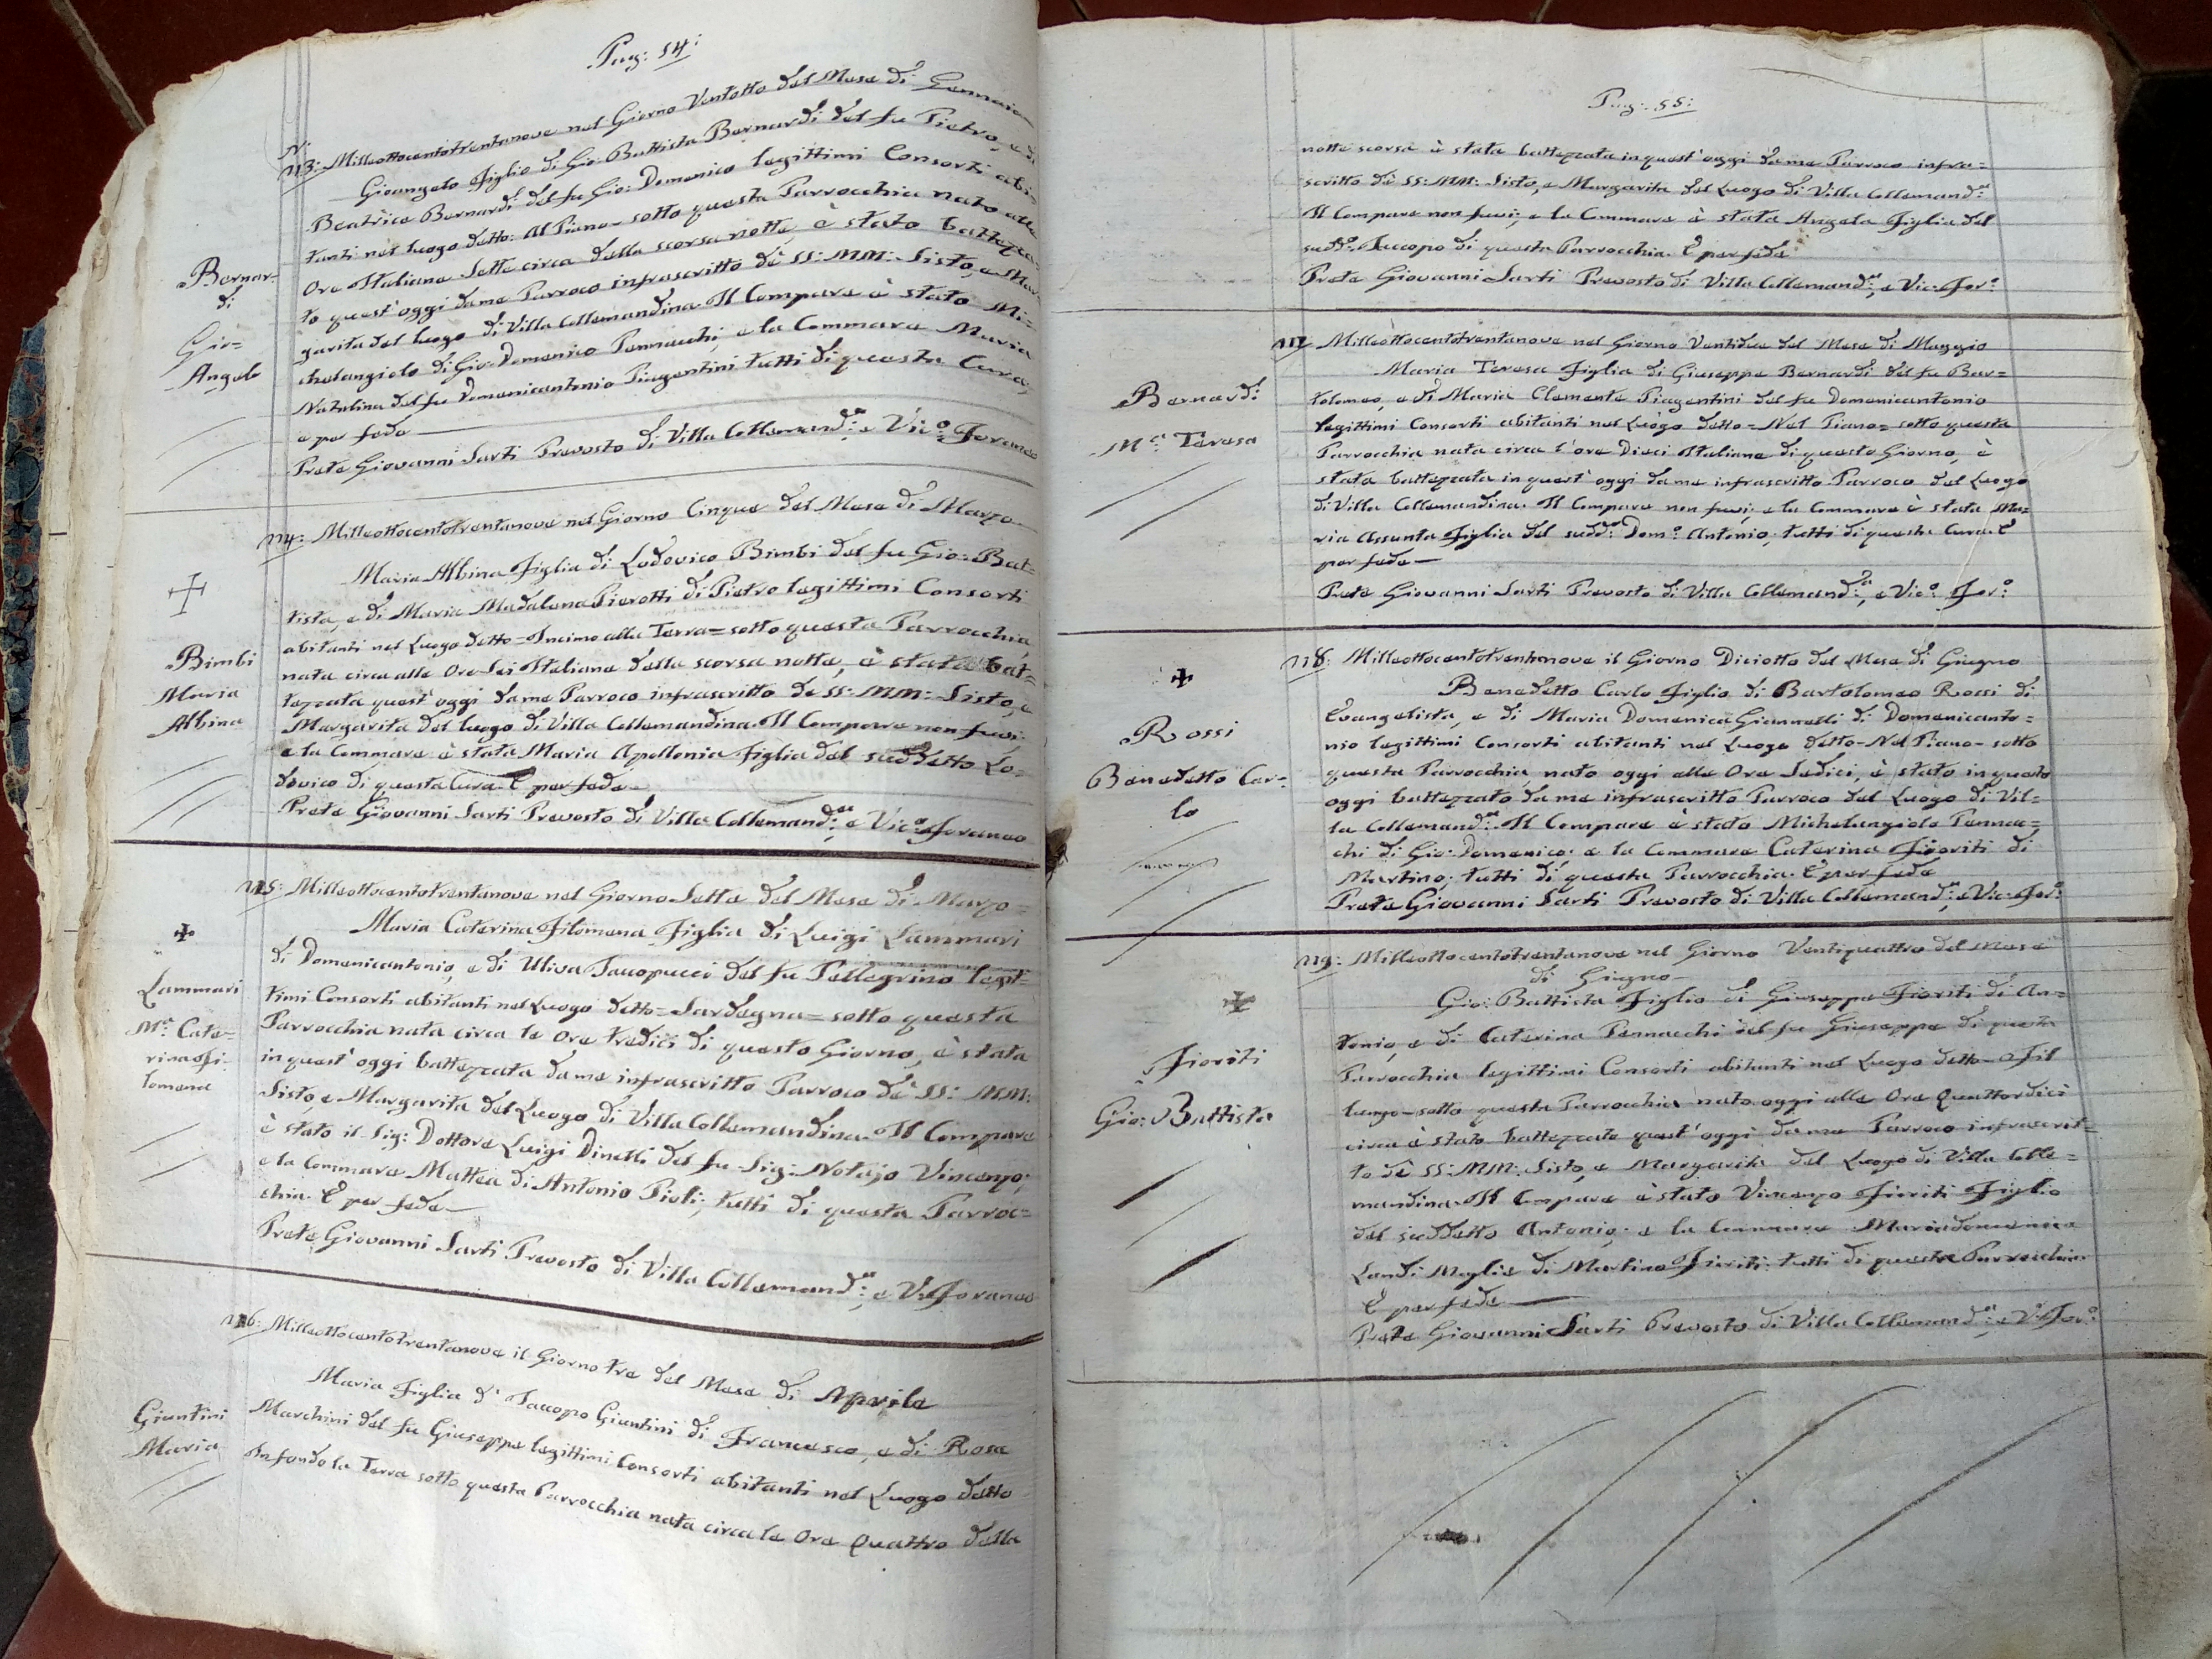 Pag: 54:
N.
113: Milleottocentotrentanove nel Giorno Ventotto del Mese di Gennaio
Gioangelo Figlio di Gio: Battista Bernardi del fu Pietro, e di
Beatrice Bernardi del fu Gio: Domenico legittimi Consorti abi=
tanti nel luogo detto: Al Piano - sotto questa Parrocchia nato alle
Ore Italiane Sette circa della scorsa notte, è stato battezza=
to quest'oggi da me Parroco infrascritto dè SS: MM: Sisto, e Mar=
garita del luogo di Villa Collemandina. Il Compare è stato Mi=
chelangiolo di Gio: Domenico Pennacchi, e la Commare Maria
Natalina del fu Domenicantonio Piagentini tutti di questa Cura,
e per fede
Prete Giovanni Sarti Prevosto di Villa Collemand:na e Vic:o Foraneo
Bernar=
di
Gio=
Angelo
114: Milleottocentotrentanove nel Giorno Cinque del Mese di Marzo
Maria Albina Figlia di Lodovico Bimbi del fu Gio: Bat=
tista, e di Maria Madalena Pierotti di Pietro legittimi Consorti
abitanti nel Luogo detto - Incima alla Terra = sotto questa Parrocchia
nata circa alle Ore Sei Italiane della scorsa notte, è stata bat=
tezzata quest'oggi da me Parroco infrascritto de SS: MM: Sisto, e
Margarita del luogo di Villa Collemandina. Il Compare non fuvi;
e la Commare è stata Maria Apollonia Figlia del suddetto Lo=
dovico di questa Cura. E per fede
Prete Giovanni Sarti Prevosto di Villa Collemand:na e Vic:o Foraneo
Bimbi
Maria
Albina
115: Milleottocentotrentanove nel Giorno Sette del Mese di Marzo =
Maria Caterina Filomena Figlia di Luigi Lammari
di Domenicantonio, e di Uliva Jacopucci del fu Pellegrino legit=
timi Consorti abitanti nel Luogo detto = Sardegna = sotto questa
Parrocchia nata circa le Ore tredici di questo Giorno, è stata
in quest'oggi battezzata da me infrascritto Parroco dè SS: MM:
Sisto, e Margarita del Luogo di Villa Collemandina. Il Compare
è stato il Sig: Dottore Luigi Dinelli del fu Sig: Notajo Vincenzo;
e la Commare Mattea di Antonio Pioli; tutti di questa Parroc=
chia. E per fede
Prete Giovanni Sarti Prevosto di Villa Collemand:na, e V: Foraneo
Lammari
M.a Cate=
rina Fi=
lomena
116: Milleottocentotrentanove il Giorno tre del Mese di Aprile
Maria Figlia d' Jacopo Giuntini di Francesco, e di Rosa
Marchini del fu Giuseppe legittimi Consorti abitanti nel Luogo detto
Infondo la Terra sotto questa Parrocchia nata circa le Ore Quattro della
Giuntini
Maria
Pag: 55:
notte scorsa è stata battezzata in quest'oggi da me Parroco infra=
scritto dè SS: MM: Sisto, e Margarita del Luogo di Villa Collemand:na
Il Compare non fuvi; e la Commare è stata Angela Figlia del
sudd:o Jaccopo di questa Parrocchia. E per fede
Prete Giovanni Sarti Prevosto di Villa Collemand:na, e Vic: For:o
117 Milleottocentotrentanove nel Giorno Ventidue del Mese di Maggio
Maria Teresa Figlia di Giuseppe Bernardi del fu Bar=
tolomeo, e di Maria Clementa Piagentini del fu Domenicantonio
legittimi Consorti abitanti nel Luogo detto = Nel Piano = sotto questa
Parrocchia nata circa l'ore Dieci Italiane di questo Giorno, è
stata battezzata in quest'oggi da me infrascritto Parroco del Luogo
di Villa Collemandina. Il Compare non fuvi; e la Commare è stata Ma=
ria Assunta Figlia del sudd: Dom:o Antonio; tutti di questa Cura. E
per fede
Prete Giovanni Sarti Prevosto di Villa Collemand:a, e Vic:o For:o
Bernardi
M.a Teresa
118: Milleottocentotrentanove il Giorno Diciotto del Mese di Giugno
Benedetto Carlo Figlio di Bartolomeo Rossi di
Evangelista, e di Maria Domenica Giannelli di Domenicanto=
nio legittimi Consorti abitanti nel Luogo detto - Nel Piano - sotto
questa Parrocchia nato oggi alle Ore Sedici, è stato in questo
oggi battezzato da me infrascritto Parroco del Luogo di Vil=
la Collemand:na. Il Compare è stato Michelangiolo Pennac=
chi di Gio: Domenico; e la Commare Caterina Fioriti di
Martino; tutti di questa Parrocchia. E per fede
Prete Giovanni Sarti Prevosto di Villa Collemand:na, e Vic: For:o
Rossi
Benedetto Car=
lo
119: Milleottocentotrentanove nel Giorno Ventiquattro del Mese
di Giugno
Gio: Battista Figlio di Giuseppe Fioriti di An=
tonio, e di Caterina Pennacchi del fu Giuseppe di questa
Parrocchia legittimi Consorti abitanti nel Luogo detto
luogo - sotto questa Parrocchia nato oggi alle Ore Quattordici
circa è stato battezzato quest'oggi da me Parroco infrascrit=
to dè SS: MM: Sisto, e Margarita del Luogo di Villa Colle=
mandina. Il Compare è stato Vincenzo Fioriti Figlio
del suddetto Antonio; e la Commare Mariadomenica
Landi Moglie di Martino Fioriti tutti di questa Parrocchia
E per fede
Prete Giovanni Sarti Prevosto di Villa Collemand:na, e V: For:o
Fioriti
Gio: Battista